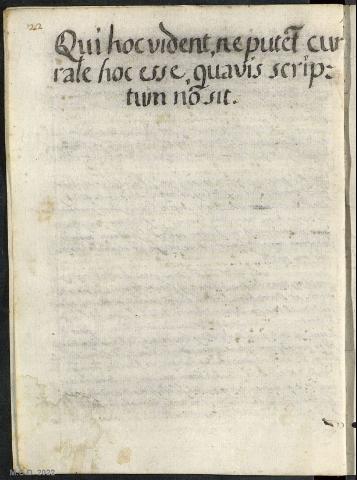 22
Qui hoc vident, ne putēt cur
rale hoc esse, quavis scrip:
tum nō sit.